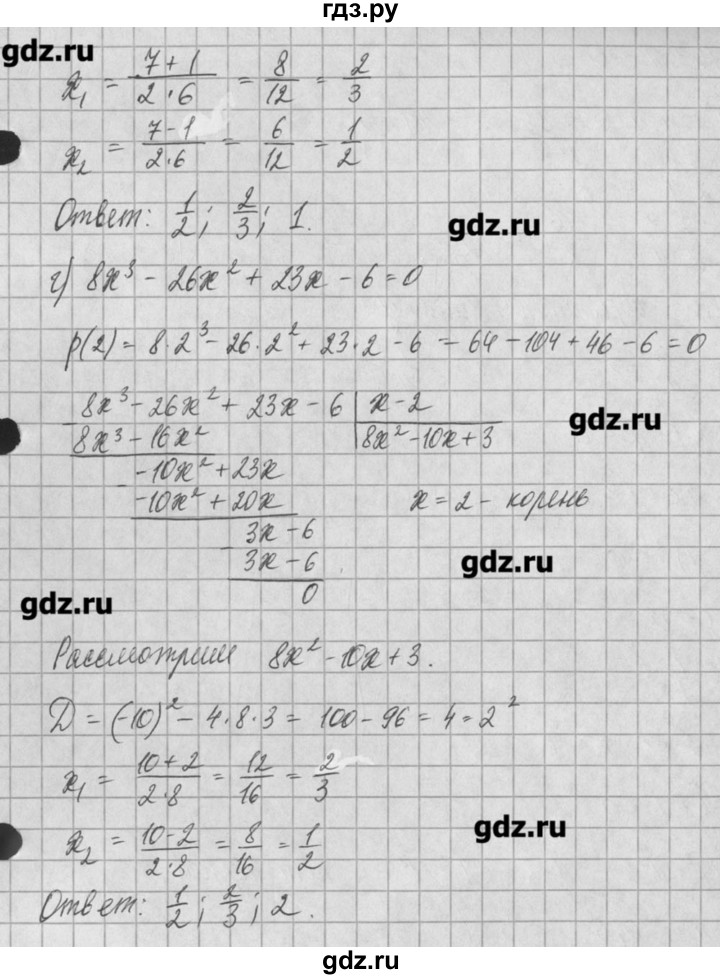 гдз.ру
gdz.ru
x₁ = (7+1)/(2·6) = 8/12 = 2/3
x₂ = (7-1)/(2·6) = 6/12 = 1/2
Ответ: 1/2; 2/3; 1.
gdz.ru
г) 8x³ - 26x² + 23x - 6 = 0
p(2) = 8·2³ - 26·2² + 23·2 - 6 = 64 - 104 + 46 - 6 = 0
8x³ - 26x² + 23x - 6 | x - 2
gdz.ru
8x³ - 16x² | 8x² - 10x + 3
-10x² + 23x
-10x² + 20x
x = 2 - корень
3x - 6
3x - 6
gdz.ru
0
gdz.ru
Рассмотрим 8x² - 10x + 3.
D = (-10)² - 4·8·3 = 100 - 96 = 4 = 2²
x₁ = (10+2)/(2·8) = 12/16 = 2/3
x₂ = (10-2)/(2·8) = 8/16 = 1/2
gdz.ru
Ответ: 1/2; 2/3; 2.
gdz.ru